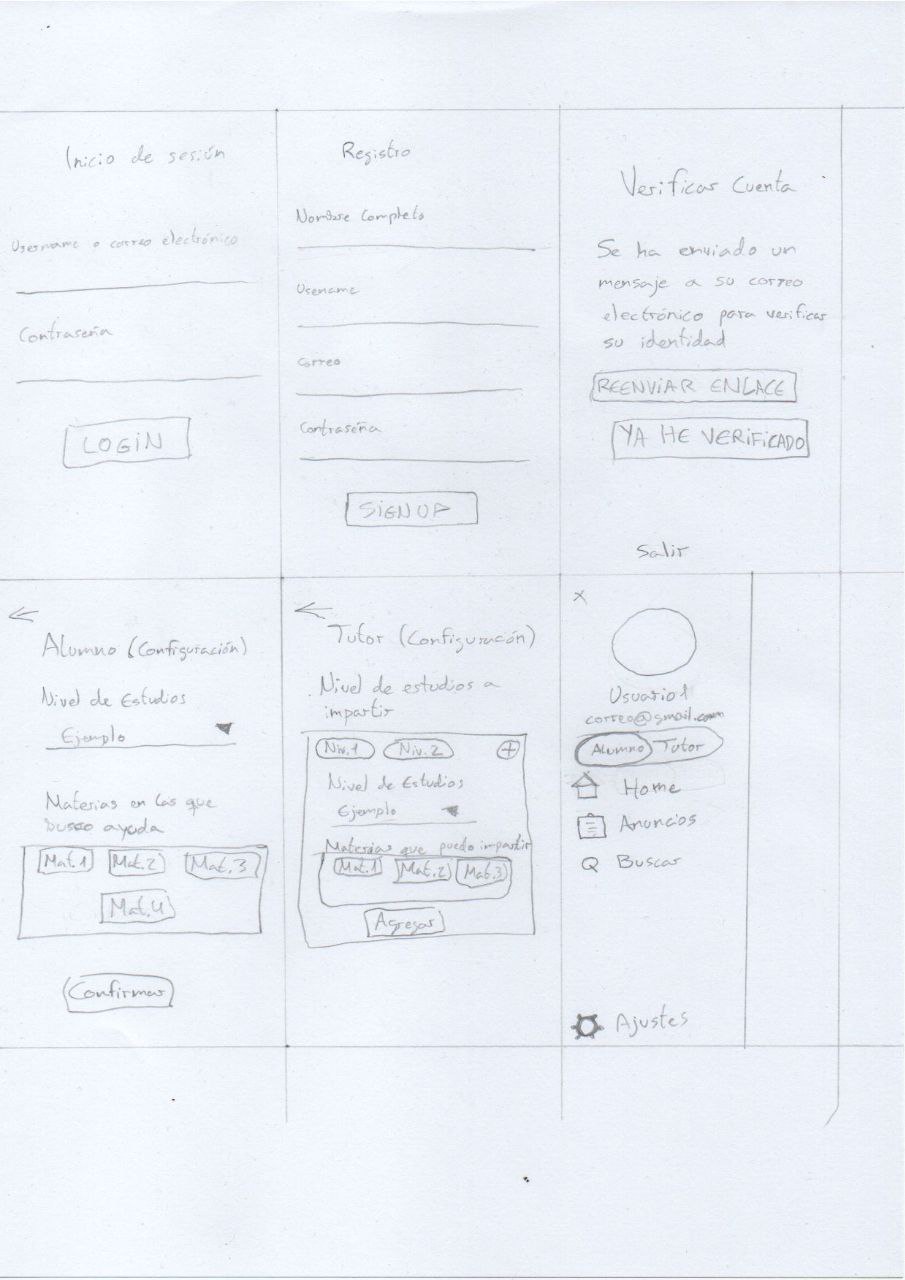 Inicio de sesión
Username o correo electrónico
Contraseña
LOGIN
Registro
Nombre Completo
Usename
Correo
Contraseña
SIGNUP
Verificar Cuenta
Se ha enviado un
mensaje a su correo
electrónico para verificar
su identidad
REENVIAR ENLACE
YA HE VERIFICADO
Salir
Alumno (Configuración)
Nivel de Estudios
Ejemplo
Materias en las que
busco ayuda
Mat.1 Mat.2 Mat.3
Mat.4
Confirmar
Tutor (Configuración)
Nivel de estudios a
impartir
Niv.1 Niv.2 +
Nivel de Estudios
Ejemplo
Materias que puedo impartir
Mat.1 Mat.2 Mat.3
Agregar
x
Usuario1
correo@gmail.com
Alumno Tutor
Home
Anuncios
Buscar
Ajustes